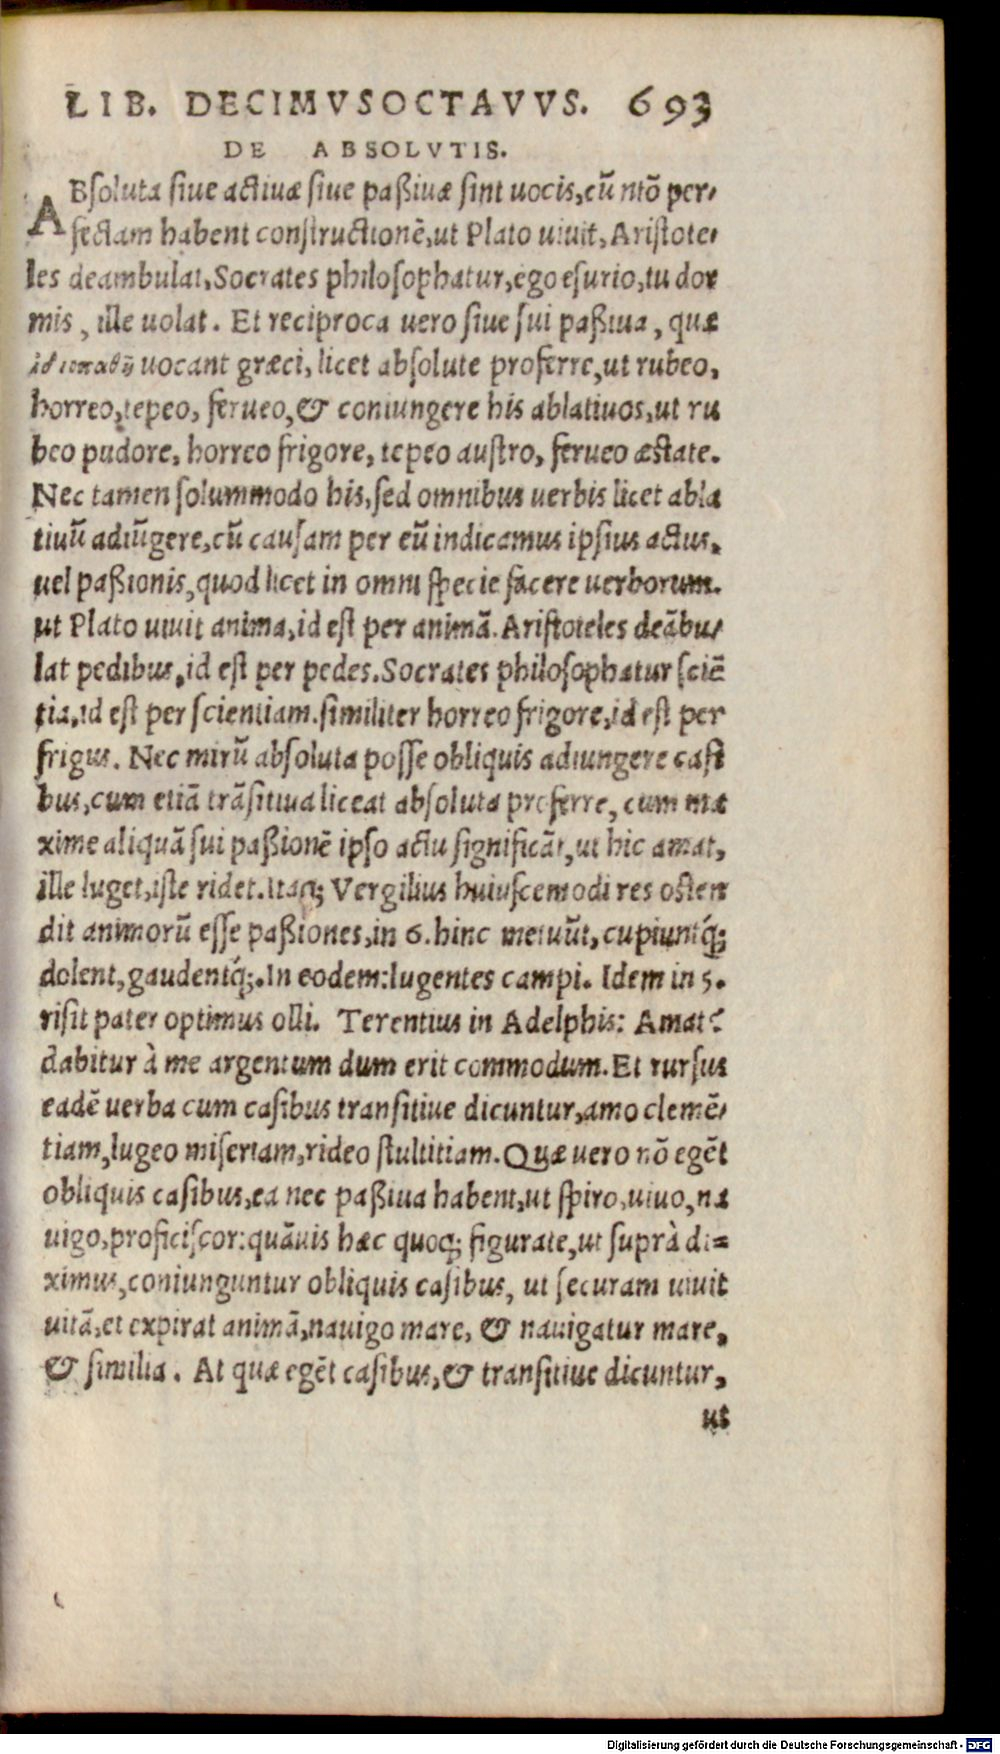 LIB. DECIMVSOCTAVVS. 693
DE ABSOLVTIS.
ABsoluta siue actiuæ siue paßiuæ sint uocis, cũ ntõ per-
fectam habent constructionẽ, ut Plato uiuit, Aristote-
les deambulat, Socrates philosophatur, ego esurio, tu dor
mis, ille uolat. Et reciproca uero siue sui paßiua, quæ
uocant græci, licet absolute proferre, ut rubeo,
horreo, tepeo, ferueo, & coniungere his ablatiuos, ut ru
beo pudore, horreo frigore, tepeo austro, ferueo æstate.
Nec tamen solummodo his, sed omnibus uerbis licet abla
tiuũ adiũgere, cũ causam per eũ indicamus ipsius actus,
uel paßionis, quod licet in omni specie facere uerborum.
ut Plato uiuit anima, id est per animã. Aristoteles deãbu-
lat pedibus, id est per pedes. Socrates philosophatur sciẽ
tia, id est per scientiam. similiter horreo frigore, id est per
frigus. Nec mirũ absoluta posse obliquis adiungere casi
bus, cum etiã trãsitiua liceat absoluta proferre, cum ma
xime aliquã sui paßionẽ ipso actu significãt, ut hic amat,
ille luget, iste ridet. Itaq; Vergilius huiuscemodi res osten
dit animorũ esse paßiones, in 6. hinc metuũt, cupiuntq́;
dolent, gaudentq́;. In eodem: lugentes campi. Idem in 5.
risit pater optimus olli. Terentius in Adelphis: Amat?
dabitur à me argentum dum erit commodum. Et rursus
eadẽ uerba cum casibus transitiue dicuntur, amo clemẽ-
tiam, lugeo miseriam, rideo stultitiam. Quæ uero nõ egẽt
obliquis casibus, ea nec paßiua habent, ut spiro, uiuo, na
uigo, proficiscor: quãuis hæc quoq; figurate, ut suprà di=
ximus, coniunguntur obliquis casibus, ut securam uiuit
uitã, et expirat animã, nauigo mare, & nauigatur mare,
& similia. At quæ egẽt casibus, & transitiue dicuntur,
ut
Digitalisierung gefördert durch die Deutsche Forschungsgemeinschaft - DFG